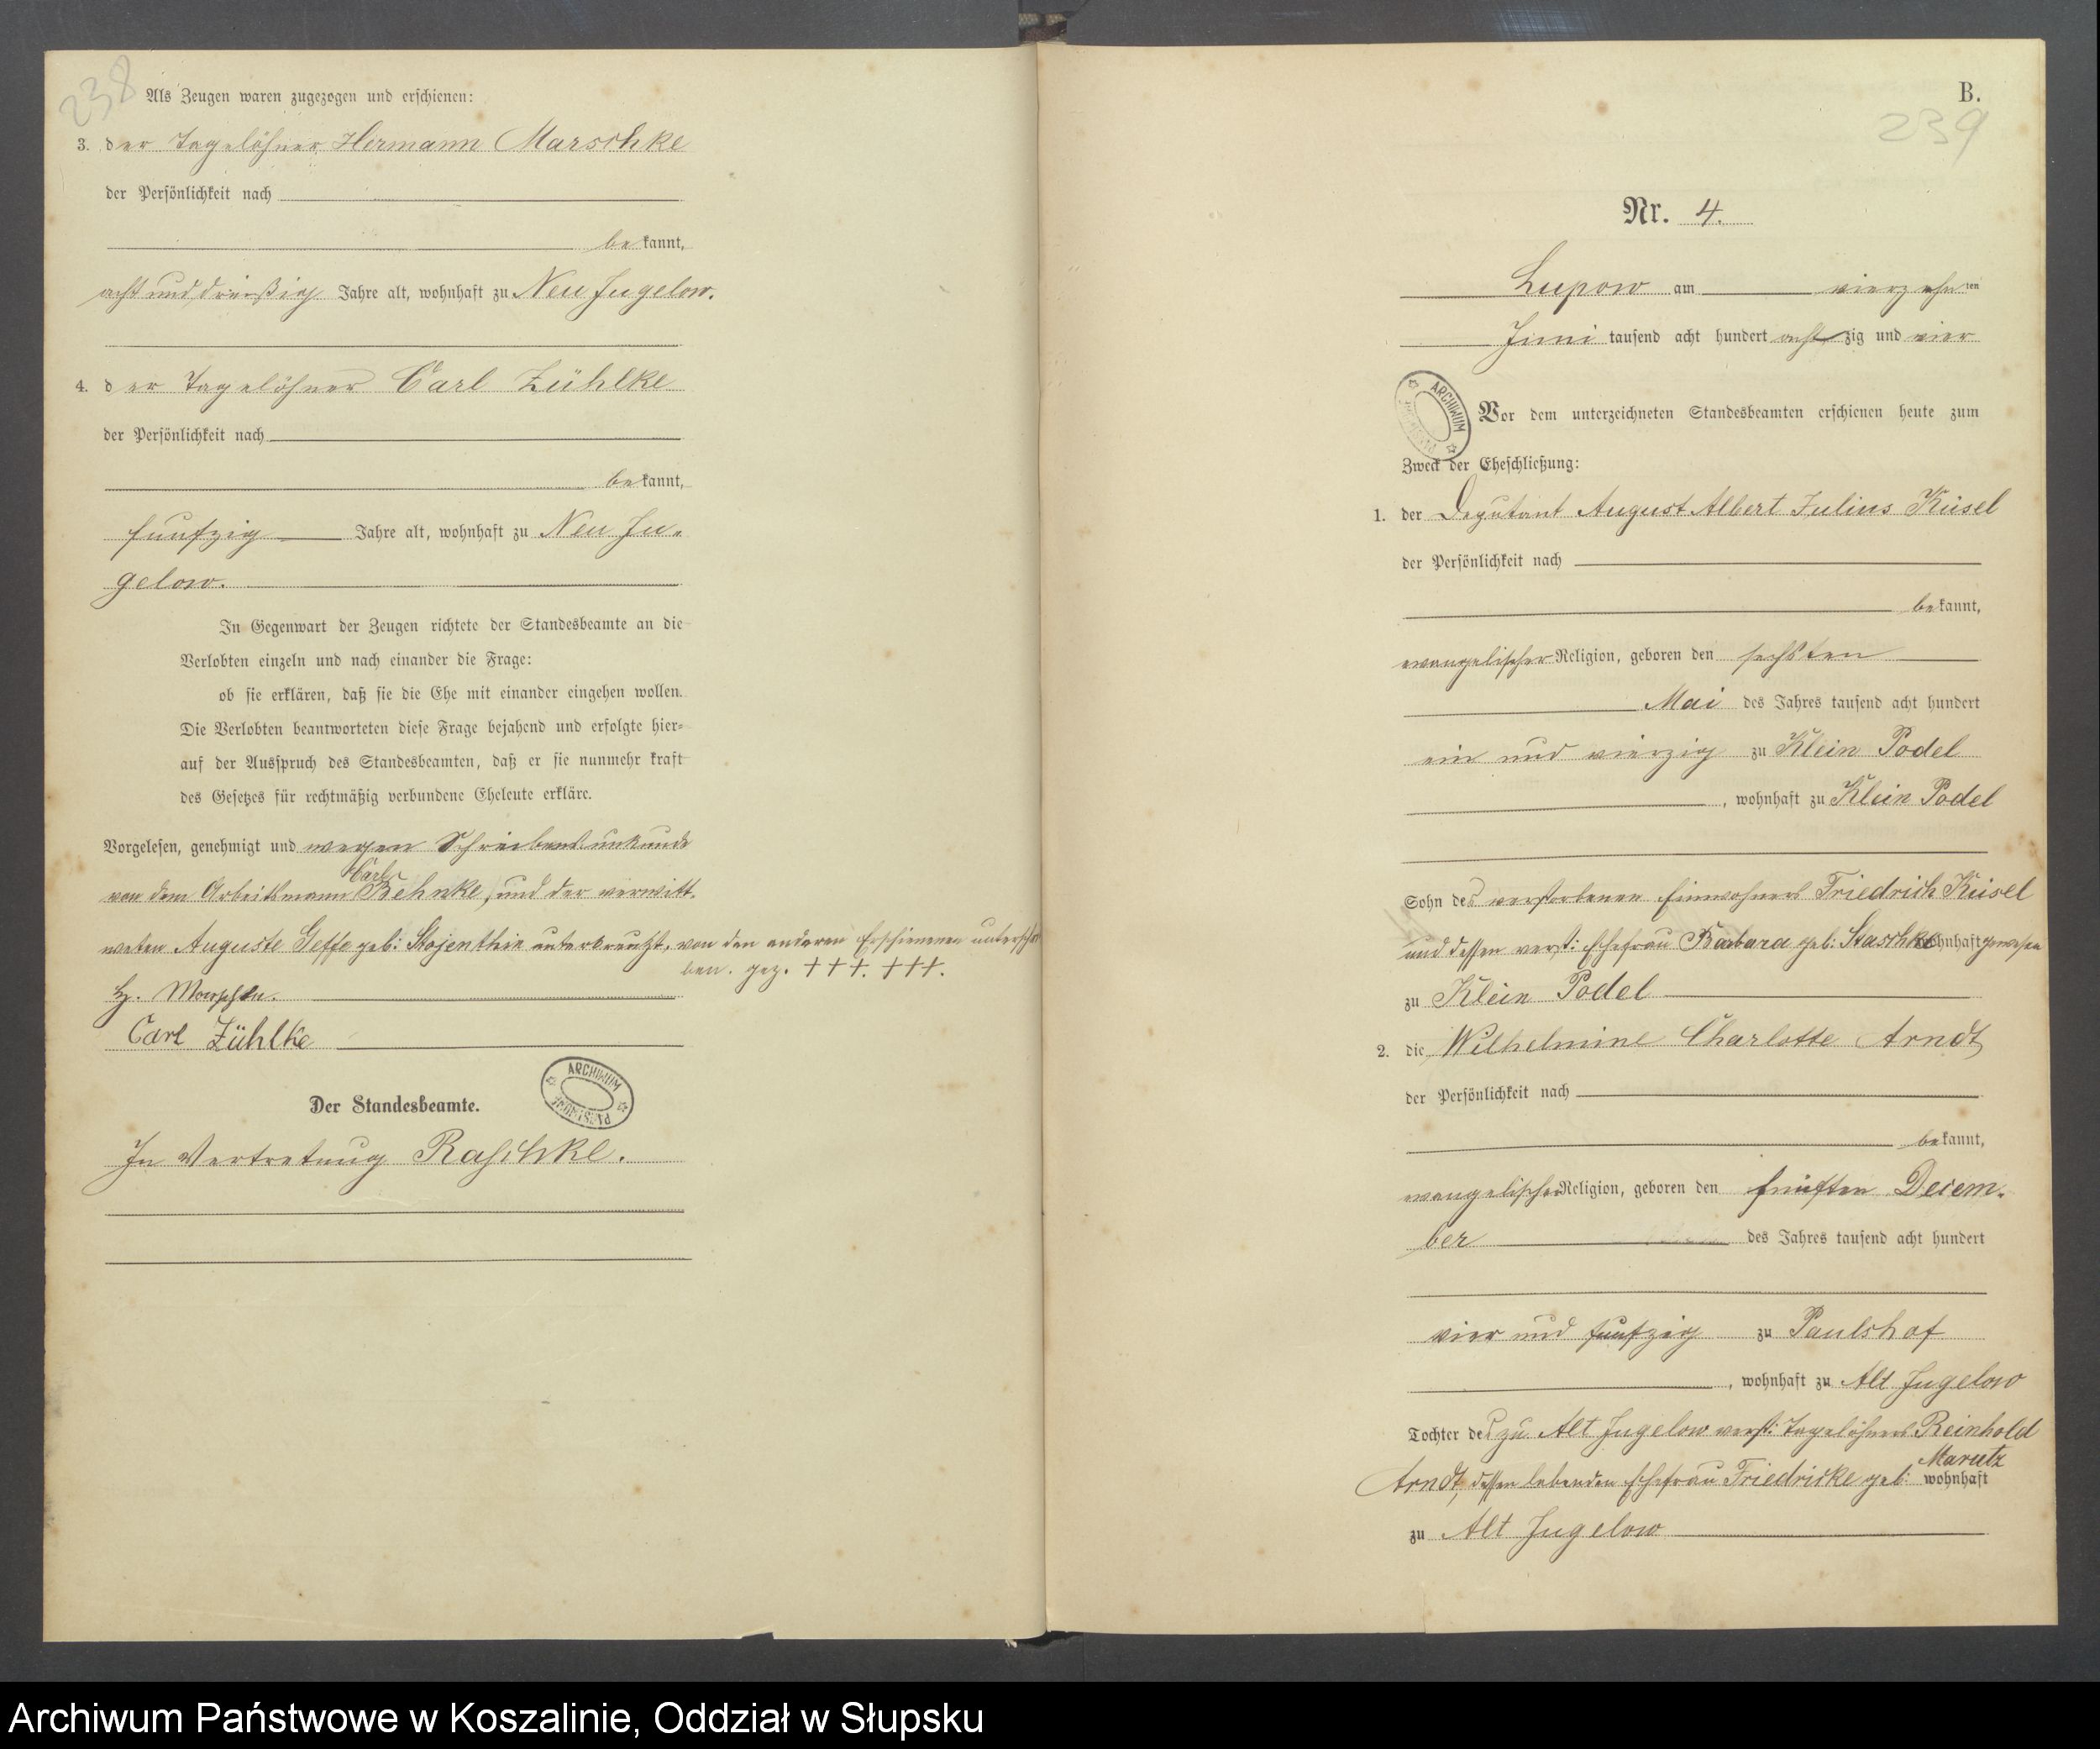 238
Als Zeugen waren zugezogen und erschienen:
3. der Tagelöhner Hermann Marschke
der Persönlichkeit nach
bekannt,
acht und dreißig Jahre alt, wohnhaft zu Neu Jugelow.
4. der Tagelöhner Carl Zühlke
der Persönlichkeit nach
bekannt,
funfzig Jahre alt, wohnhaft zu Neu Ju-
gelow.
In Gegenwart der Zeugen richtete der Standesbeamte an die
Verlobten einzeln und nach einander die Frage:
ob sie erklären, daß sie die Ehe mit einander eingehen wollen.
Die Verlobten beantworteten diese Frage bejahend und erfolgte hier-
auf der Ausspruch des Standesbeamten, daß er sie nunmehr kraft
des Gesetzes für rechtmäßig verbundene Eheleute erkläre.
Vorgelesen, genehmigt und wegen Schreibensunkunde
Carl
von dem Arbeitsmann Behnke, und der verwitt-
weten Auguste Geffe geb: Stojenthin unterkreuzt, von den anderen Erschienenen unterschrie
ben. gez. +++. +++.
H.
Carl Zühlke
ARCHIWUM PAŃSTWOWE
Der Standesbeamte.
In Vertretung Raschke.
B.
239
Nr. 4.
Lupow am vierzehnten
Juni tausend acht hundert achtzig und vier
ARCHIWUM PAŃSTWOWE
Vor dem unterzeichneten Standesbeamten erschienen heute zum
Zweck der Eheschließung:
1. der Deputant August Albert Julius Küsel
der Persönlichkeit nach
bekannt,
evangelischer Religion, geboren den sechsten
Mai des Jahres tausend acht hundert
ein und vierzig zu Klein Podel
, wohnhaft zu Klein Podel
Sohn des verstorbenen Einwohners Friedrich Küsel
und dessen verst: Ehefrau Barbara geb: Staschke wohnhaft gewesen
zu Klein Podel
2. die Wilhelmine Charlotte Arndt
der Persönlichkeit nach
bekannt,
evangelischer Religion, geboren den fünften Decem-
ber des Jahres tausend acht hundert
vier und funfzig zu Paulshof
, wohnhaft zu Alt Jugelow
Tochter des zu Alt Jugelow verst: Tagelöhners Reinhold
Marutz
Arndt, dessen lebenden Ehefrau Friedricke geb: wohnhaft
zu Alt Jugelow
Archiwum Państwowe w Koszalinie, Oddział w Słupsku